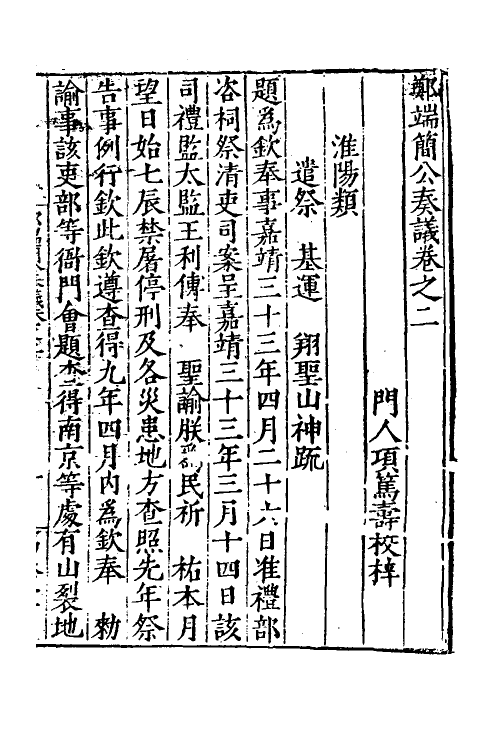 鄭端簡公奏議卷之二
門人項篤壽校梓
淮陽類
遣祭　基運　翔聖山神疏
題為欽奉事嘉靖三十三年四月二十六日准禮部
咨祠祭清吏司案呈嘉靖三十三年三月十四日該
司禮監太監王利傳奉　聖諭朕為民祈　祐本月
望日始七辰禁屠停刑及各災患地方查照先年祭
告事例行欽此欽遵查得九年四月內為欽奉　勑
諭事該吏部等衙門會題查得南京等處有山裂地